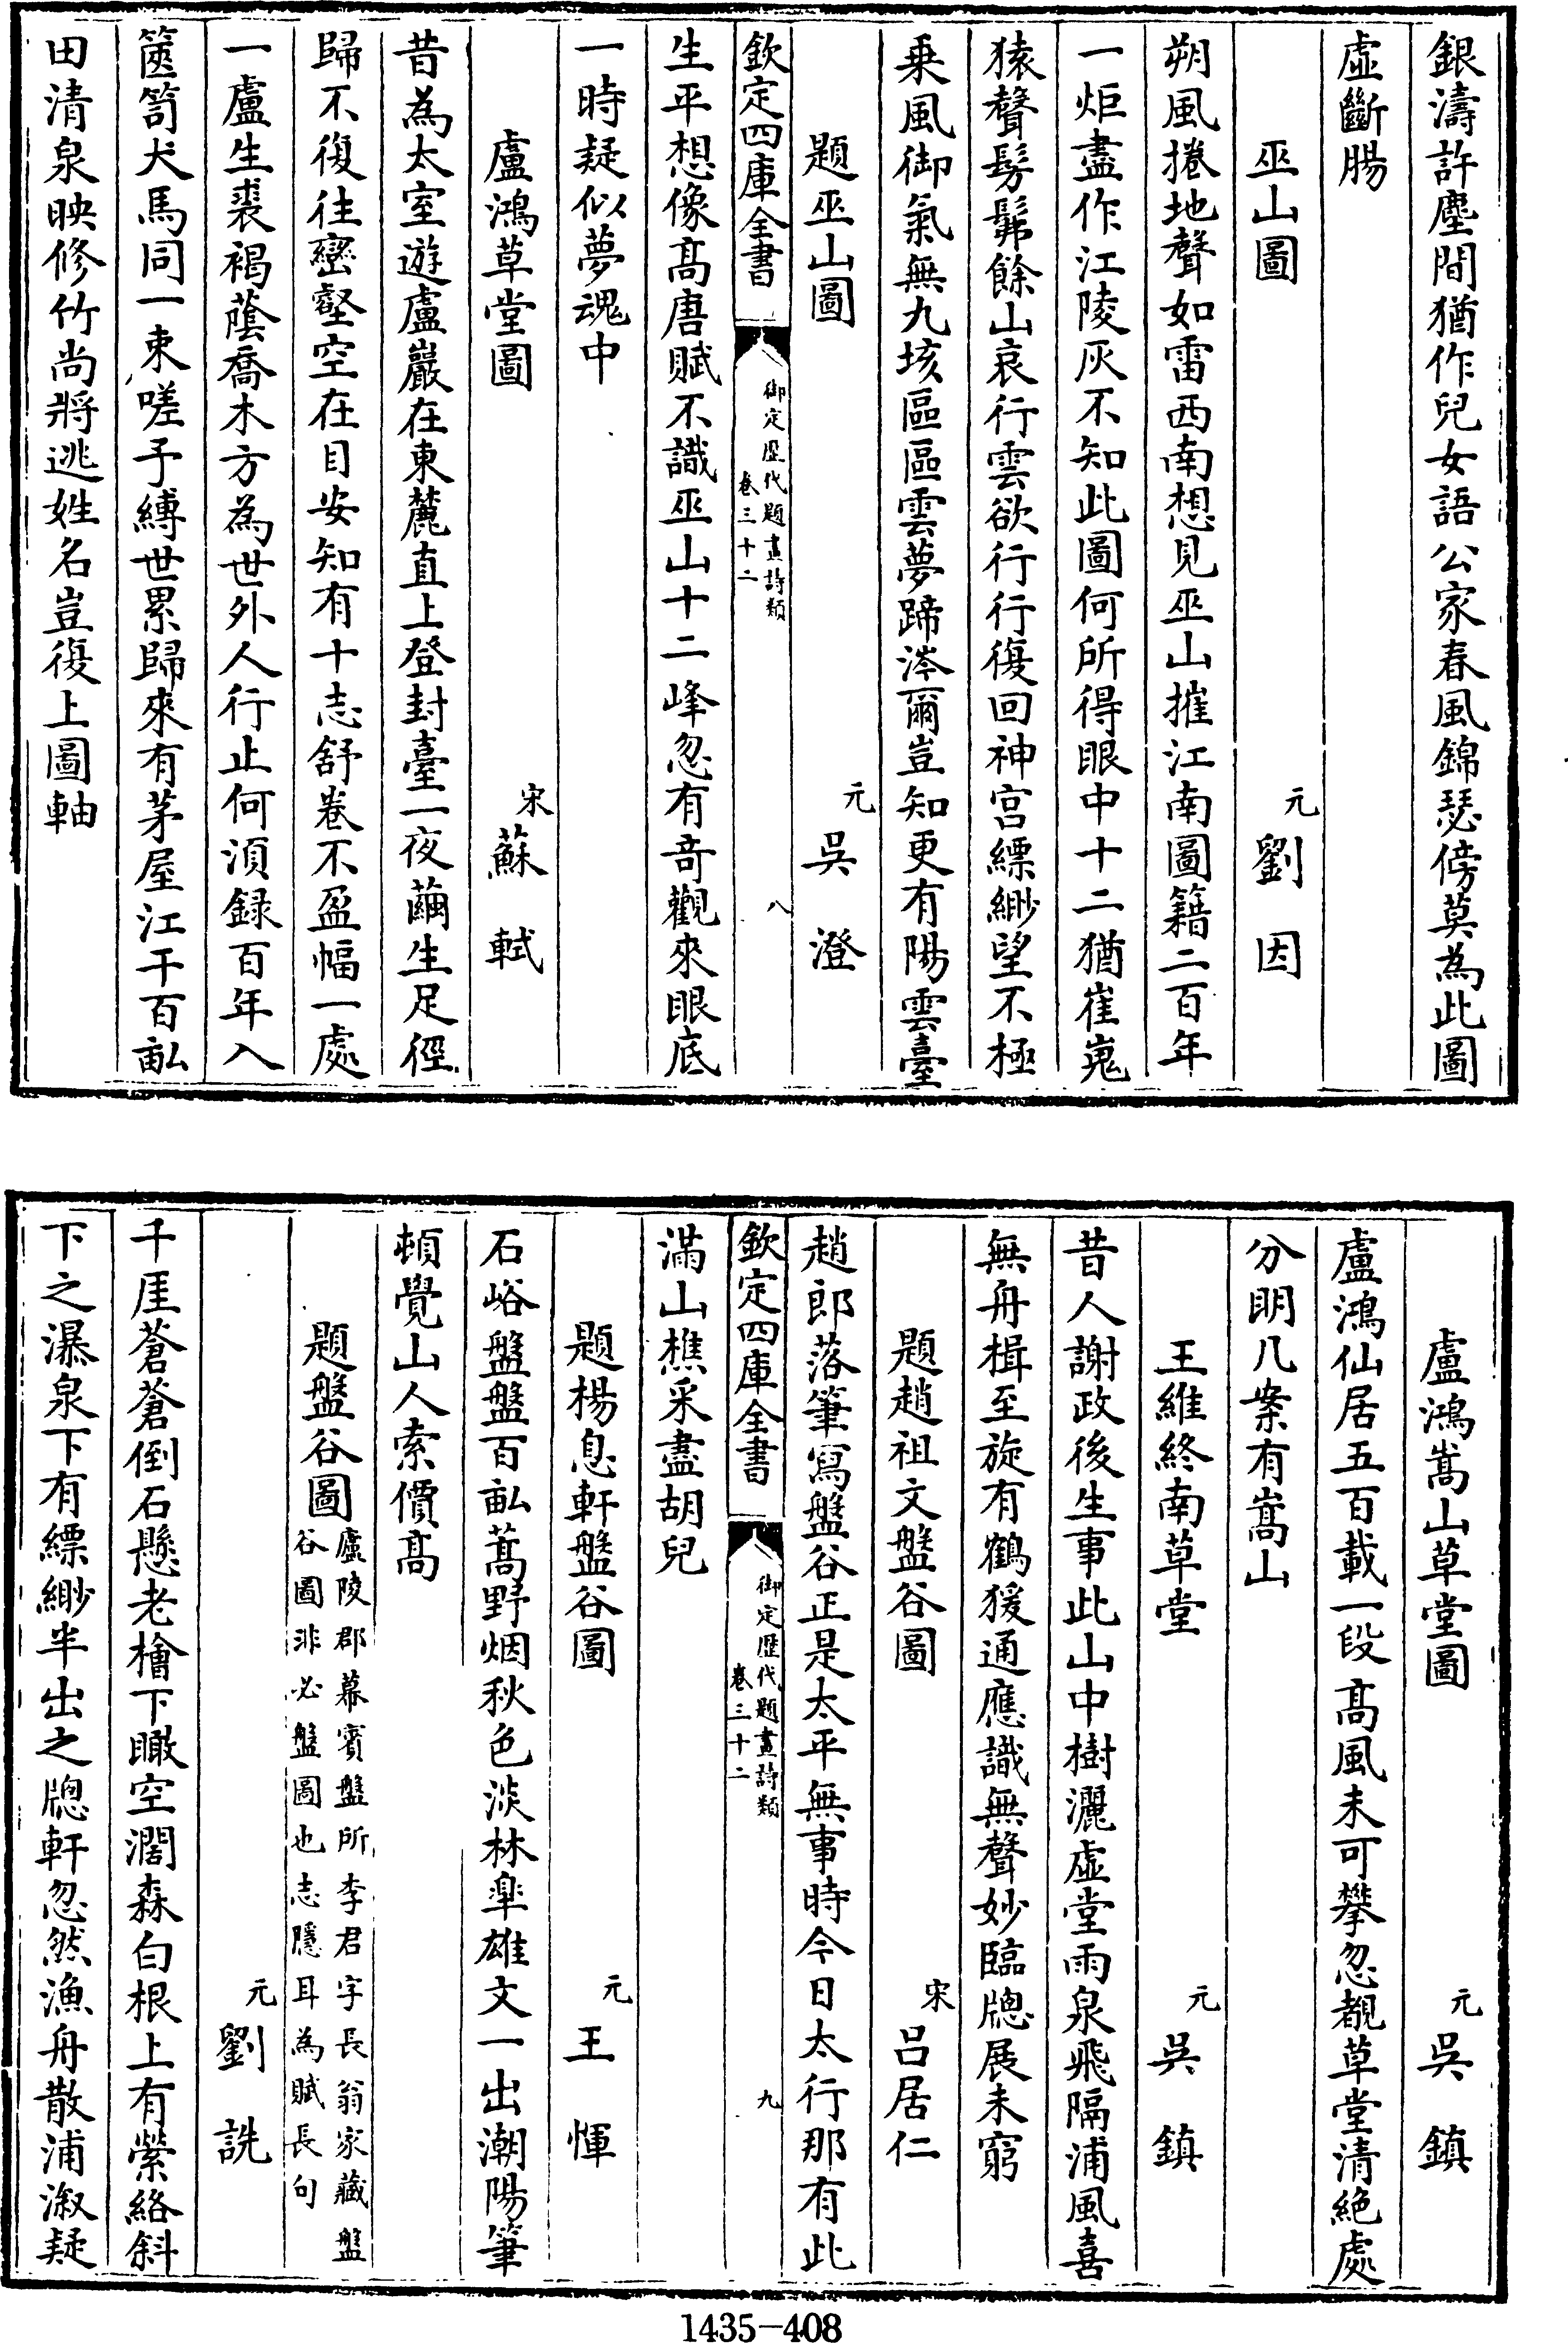 銀濤許塵間猶作兒女語公家春風錦瑟傍莫為此圖
虚斷腸
巫山圖
元劉因
朔風捲地聲如雷西南想見巫山摧江南圖籍二百年
一炬盡作江陵灰不知此圖何所得眼中十二猶崔嵬
猿聲髣髴餘山哀行雲欲行行復回神宫縹緲望不極
乗風御氣無九垓區區雲夢蹄涔爾豈知更有陽雲臺
題巫山圖
元吳澄
欽定四庫全書
御定歴代題畫詩類
卷三十二
八
生平想像髙唐賦不識巫山十二峰忽有竒觀來眼底
一時疑似夢魂中
盧鴻草堂圖
宋蘇軾
昔為太室遊盧巖在東麓直上登封臺一夜繭生足徑
歸不復往巒壑空在目安知有十志舒卷不盈幅一處
一盧生裘褐蔭喬木方為世外人行止何湏録百年入
篋笥犬馬同一束嗟予縛世累歸來有茅屋江干百畝
田清泉映修竹尚將逃姓名豈復上圖軸
盧鴻嵩山草堂圖
元吳鎮
盧鴻仙居五百載一段髙風未可攀忽覩草堂清絶處
分明几案有嵩山
王維終南草堂
元吳鎮
昔人謝政後生事此山中樹灑虚堂雨泉飛隔浦風喜
無舟楫至旋有鶴猨通應識無聲妙臨牎展未窮
題趙祖文盤谷圖
宋吕居仁
趙郎落筆寫盤谷正是太平無事時今日太行那有此
欽定四庫全書
御定歴代題畫詩類
卷三十二
九
滿山樵采盡胡兒
題楊息軒盤谷圖
元王惲
石峪盤盤百畝蒿野烟秋色淡林臯雄文一出潮陽筆
頓覺山人索價髙
題盤谷圖
廬陵郡幕賓盤所李君字長翁家藏盤
谷圖非必盤圖也志隱耳為賦長句
元劉詵
千厓蒼蒼倒石懸老檜下瞰空濶森白根上有縈絡斜
下之瀑泉下有縹緲半出之牎軒忽然漁舟散浦溆疑
1435-408